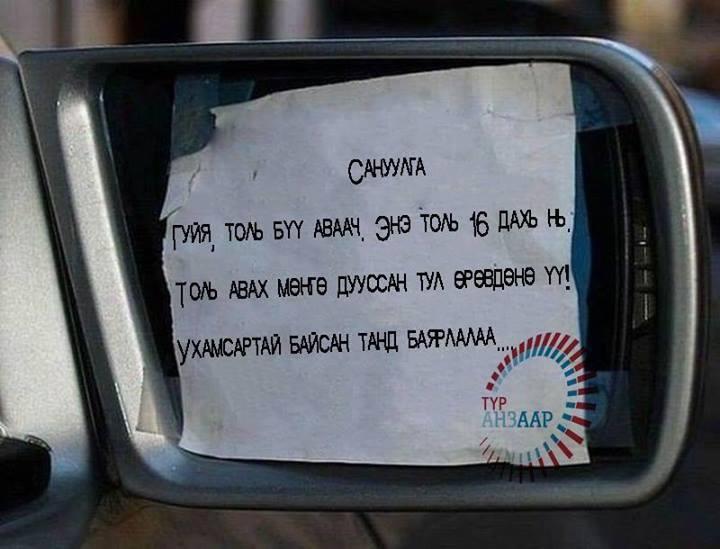 САНУУЛГА
ГУЙЯ, ТОЛЬ БҮҮ АВААЧ. ЭНЭ ТОЛЬ 16 ДАХЬ НЬ.
ТОЛЬ АВАХ МӨНГӨ ДУУССАН ТУЛ ӨРӨВДӨНӨ ҮҮ!
УХАМСАРТАЙ БАЙСАН ТАНД БАЯРЛАЛАА....
ТҮР
АНЗААР